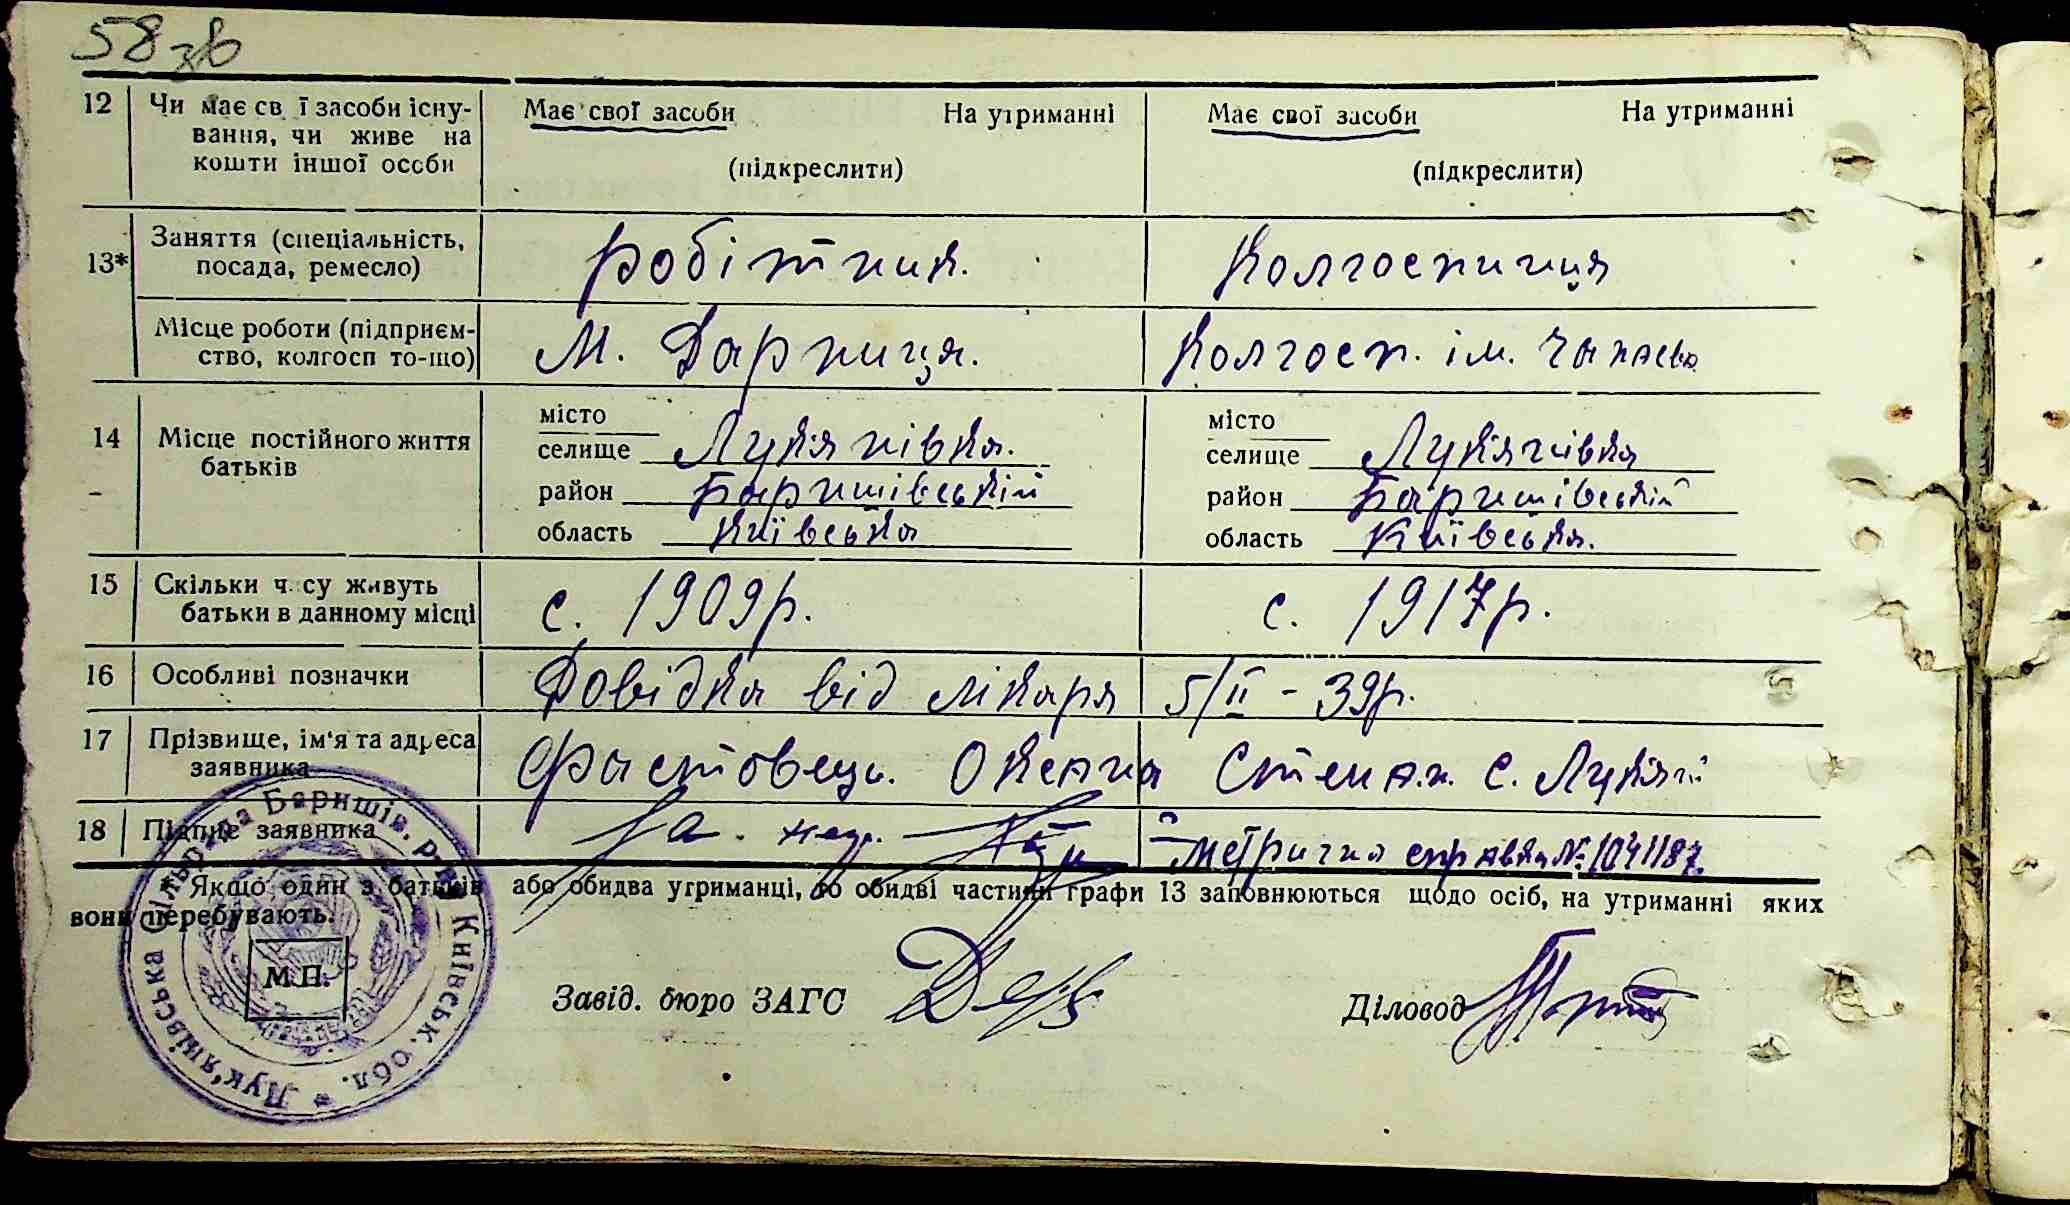 58 зв
12 Чи має св ї засоби існу- Має свої засоби На утриманні Має свої засоби На утриманні
вання, чи живе на
кошти іншої особи (підкреслити) (підкреслити)
13* Заняття (спеціальність, робітник. Колгоспниця
посада, ремесло)
Місце роботи (підприєм- М. Дарниця. Колгосп. ім. Чапаєва
ство, колгосп то-що)
14 Місце постійного життя місто місто
батьків селище Лукянівка. селище Лукянівка
район Баришівській район Баришівській
область Київська область Київська.
15 Скільки ч су живуть с. 1909р. с. 1917р.
батьки в данному місці
16 Особливі позначки Довідка від лікаря 5/II - 39р.
17 Прізвище, ім'я та адреса Фастовець. Оксана Степан. с. Лукян
заявника
18 Підпис заявника За. Метрична справка № 1041187.
Якщо один з батьків або обидва утриманці, то обидві частини графи 13 заповнюються щодо осіб, на утриманні яких
вони перебувають.
М.П.
Завід. бюро ЗАГС Діловод
Лук'янівська сільрада Баришів. р-ну Київськ. обл.